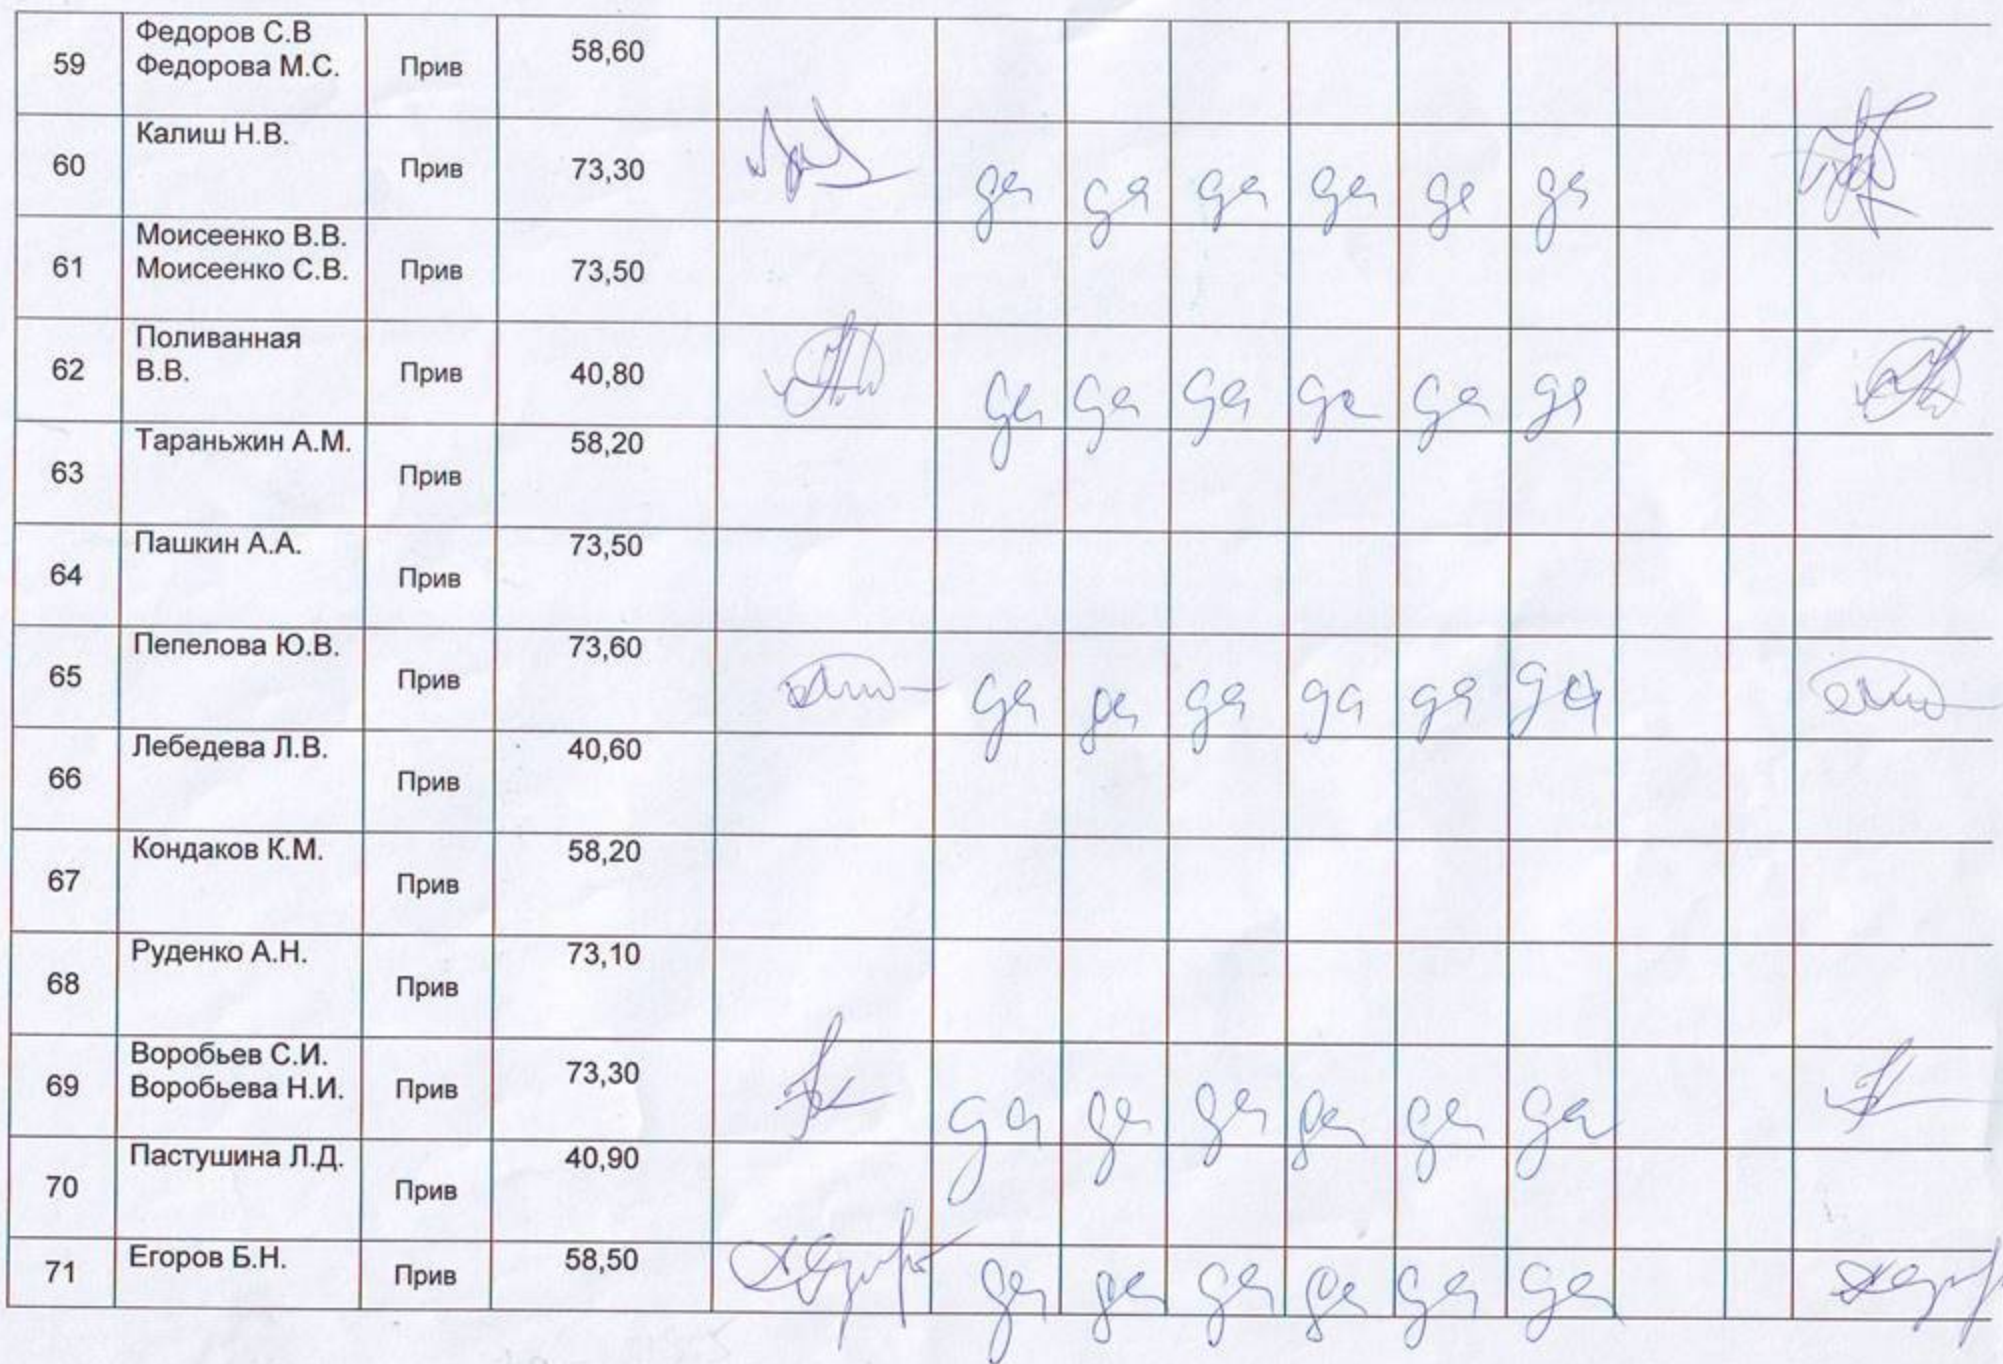 59 Федоров С.В Федорова М.С. Прив 58,60
60 Калиш Н.В. Прив 73,30 да да да да да да
61 Моисеенко В.В. Моисеенко С.В. Прив 73,50
62 Поливанная В.В. Прив 40,80 да да да да да да
63 Тараньжин А.М. Прив 58,20
64 Пашкин А.А. Прив 73,50
65 Пепелова Ю.В. Прив 73,60 да да да да да да
66 Лебедева Л.В. Прив 40,60
67 Кондаков К.М. Прив 58,20
68 Руденко А.Н. Прив 73,10
69 Воробьев С.И. Воробьева Н.И. Прив 73,30 да да да да да да
70 Пастушина Л.Д. Прив 40,90
71 Егоров Б.Н. Прив 58,50 да да да да да да